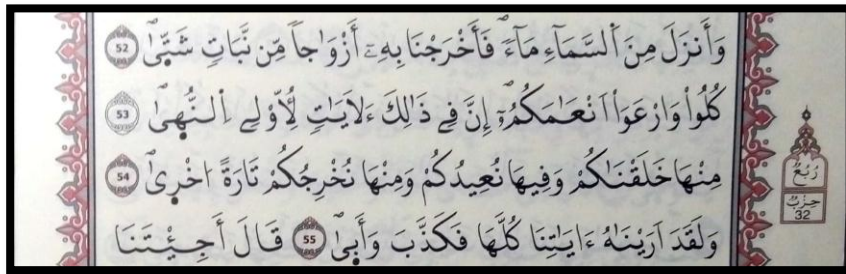 وَأَنزَلَ مِنَ ٱلسَّمَآءِ مَآءٗ فَأَخْرَجْنَا بِهِۦٓ أَزْوَٰجاٗ مِّن نَّبَاتٖ شَتّ۪يٰۖ 52
كُلُواْ وَارْعَوَاْ اَنْعَٰمَكُمُۥٓۖ إِنَّ فِے ذَٰلِكَ ءَلَايَٰتٖ لِّأُوْلِے اِ۬لنُّه۪يٰۖ 53
مِنْهَا خَلَقْنَٰكُمْ وَفِيهَا نُعِيدُكُمْ وَمِنْهَا نُخْرِجُكُمْ تَارَةً اُخْر۪يٰۖ 54
وَلَقَدَ اَرَيْنَٰهُ ءَايَٰتِنَا كُلَّهَا فَكَذَّبَ وَأَب۪يٰۖ 55 قَالَ أَجِئْتَنَا
رُبُعُ
حِزْبُ
32